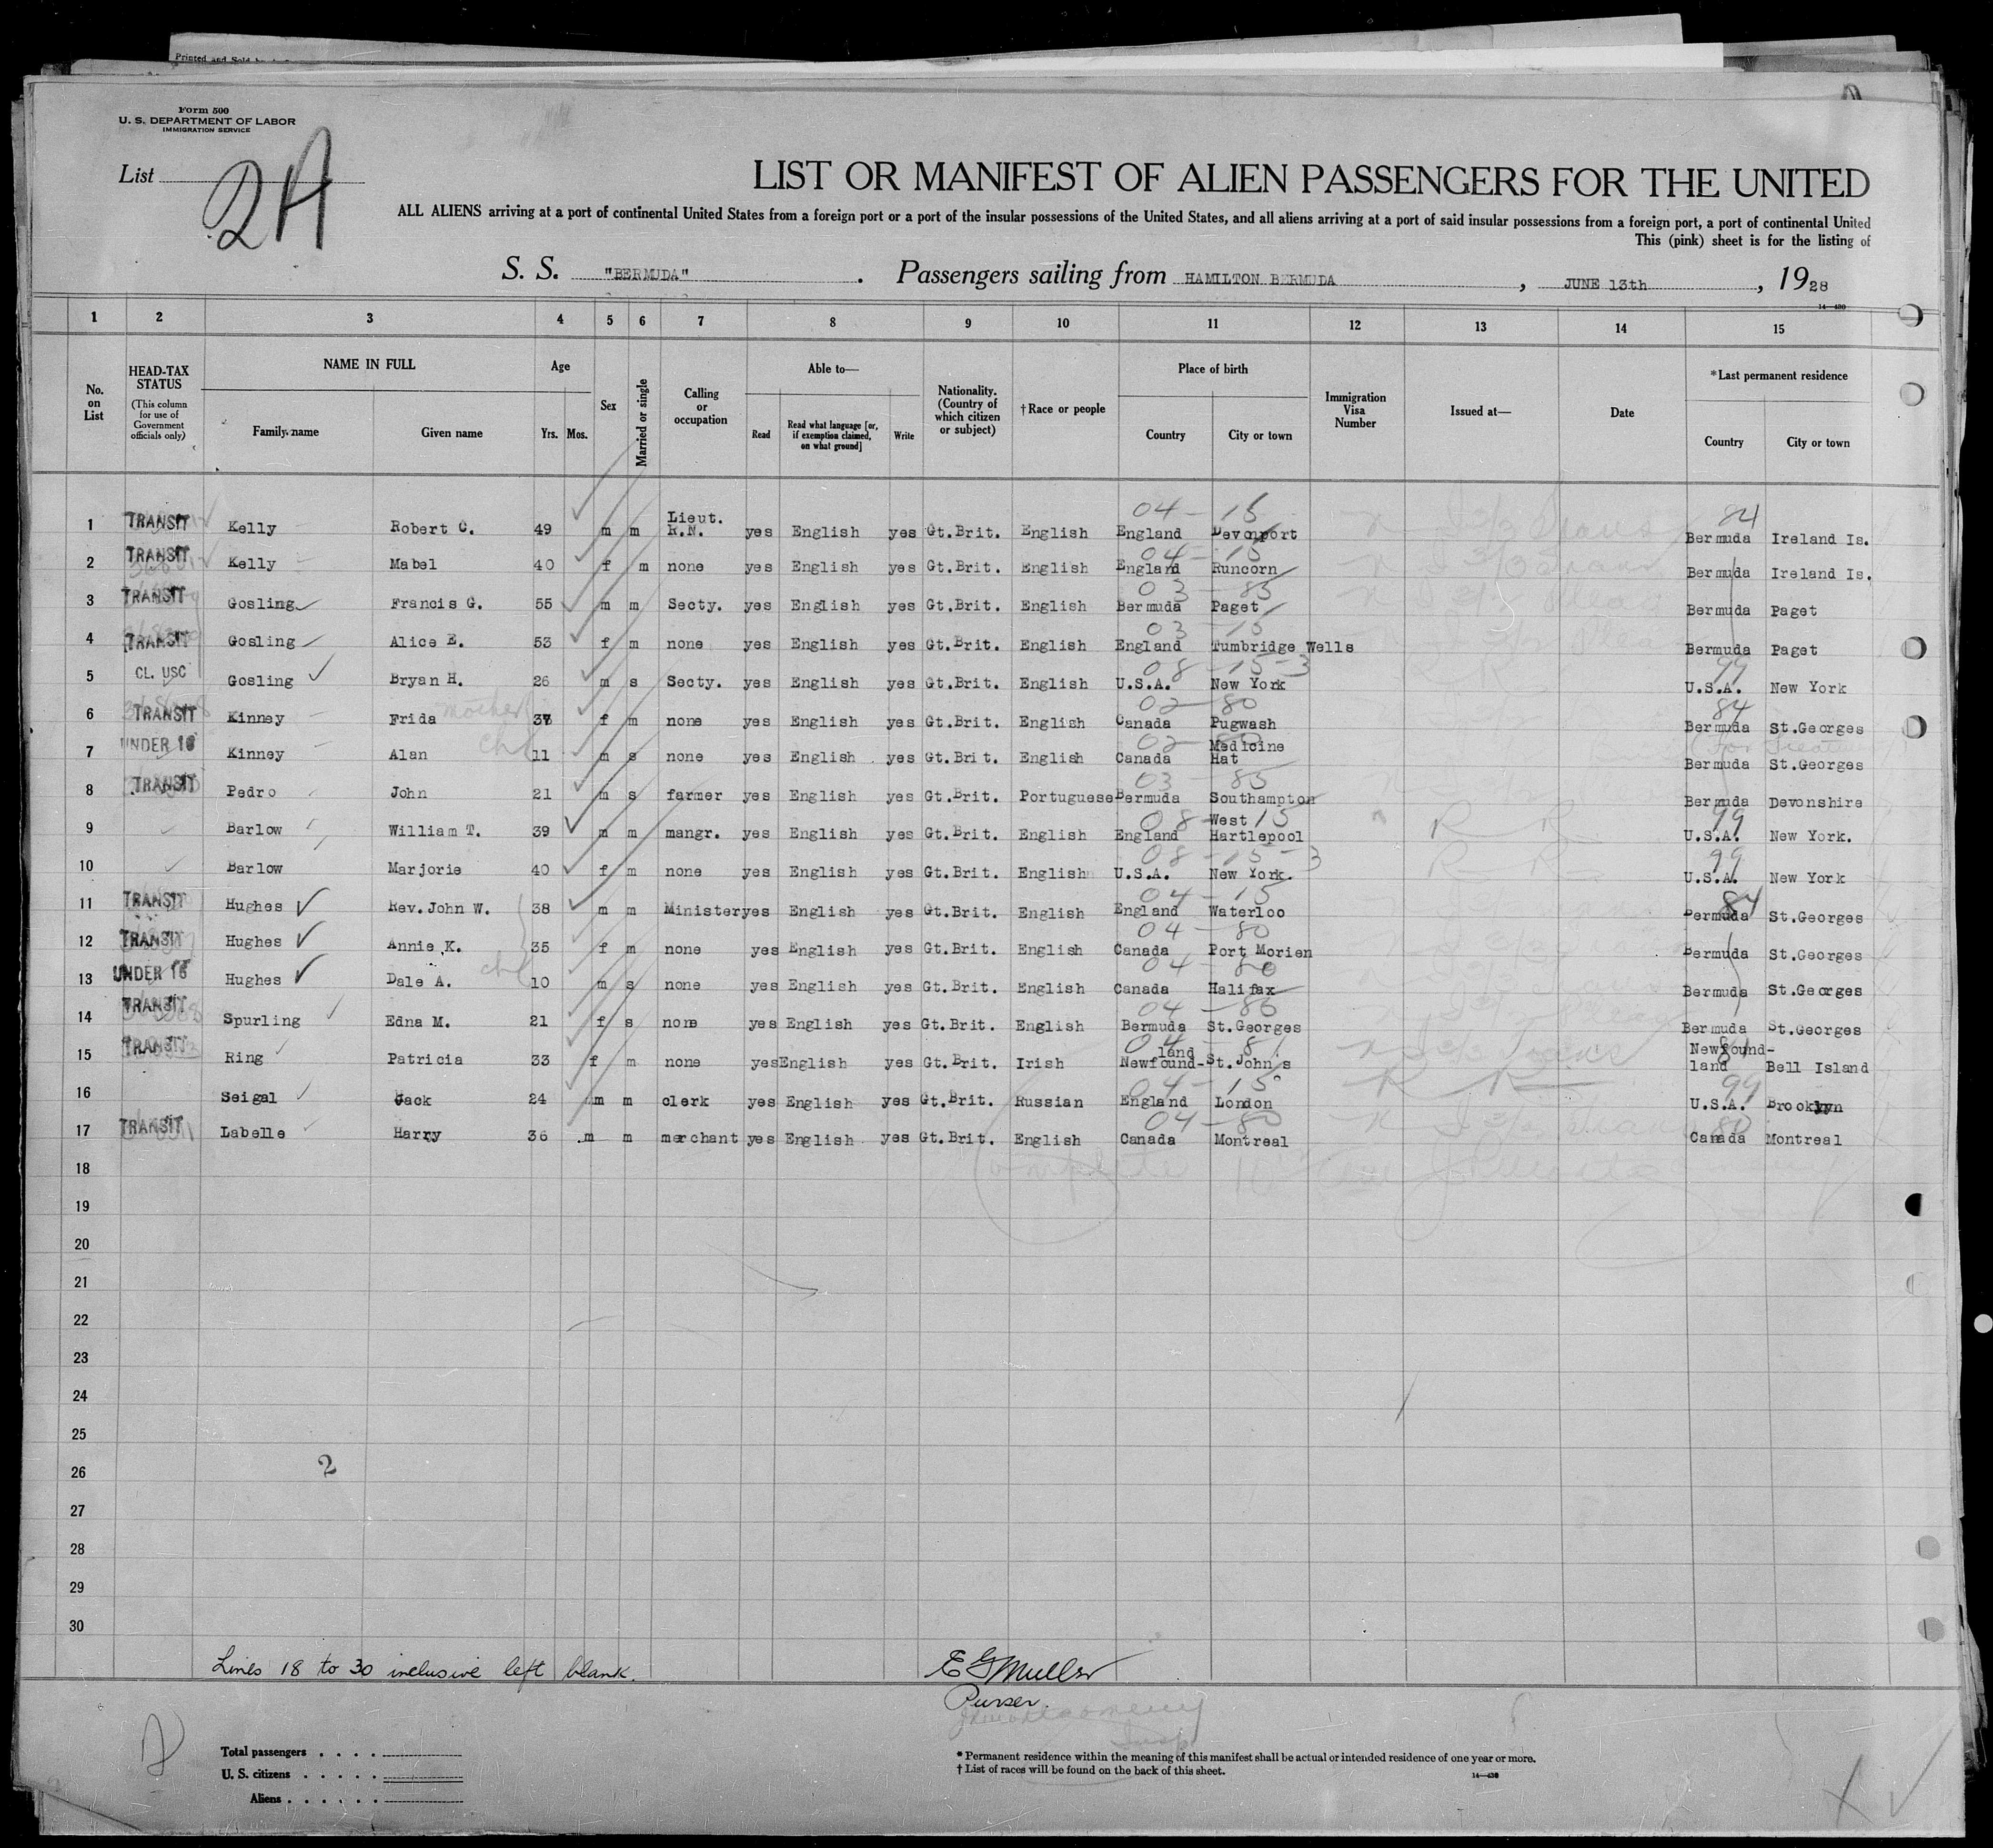 Printed and Sold by
Form 500
U. S. DEPARTMENT OF LABOR
IMMIGRATION SERVICE
List 2A
LIST OR MANIFEST OF ALIEN PASSENGERS FOR THE UNITED
ALL ALIENS arriving at a port of continental United States from a foreign port or a port of the insular possessions of the United States, and all aliens arriving at a port of said insular possessions from a foreign port, a port of continental United
This (pink) sheet is for the listing of
S. S. "BERMUDA" . Passengers sailing from HAMILTON BERMUDA , JUNE 13th , 1928
14—430
1 2 3 4 5 6 7 8 9 10 11 12 13 14 15
No. on List
HEAD-TAX STATUS (This column for use of Government officials only)
NAME IN FULL
Family name Given name
Age
Yrs. Mos.
Sex
Married or single
Calling or occupation
Able to—
Read
Read what language [or, if exemption claimed, on what ground]
Write
Nationality. (Country of which citizen or subject)
†Race or people
Place of birth
Country City or town
Immigration Visa Number
Issued at—
Date
*Last permanent residence
Country City or town
04 - 15 84
1 TRANSIT Kelly Robert C. 49 m m Lieut. R.N. yes English yes Gt.Brit. English England Devonport Bermuda Ireland Is.
04 - 15
2 TRANSIT Kelly Mabel 40 f m none yes English yes Gt.Brit. English England Runcorn Bermuda Ireland Is.
03 - 85
3 TRANSIT Gosling Francis G. 55 m m Secty. yes English yes Gt.Brit. English Bermuda Paget Bermuda Paget
03 - 15
4 TRANSIT Gosling Alice E. 53 f m none yes English yes Gt.Brit. English England Tumbridge Wells Bermuda Paget
08 - 15 - 3 99
5 CL. USC Gosling Bryan H. 26 m s Secty. yes English yes Gt.Brit. English U.S.A. New York U.S.A. New York
mother 02 - 80 84
6 TRANSIT Kinney Frida 37 f m none yes English yes Gt.Brit. English Canada Pugwash Bermuda St.Georges
ch 02 - 80
7 UNDER 16 Kinney Alan 11 m s none yes English yes Gt.Brit. English Canada Medicine Hat Bermuda St.Georges
03 - 85
8 TRANSIT Pedro John 21 m s farmer yes English yes Gt.Brit. Portuguese Bermuda Southampton Bermuda Devonshire
08 - 15 99
9 Barlow William T. 39 m m mangr. yes English yes Gt.Brit. English England West Hartlepool R R U.S.A. New York.
08 - 15 - 3 99
10 Barlow Marjorie 40 f m none yes English yes Gt.Brit. English U.S.A. New York. R R U.S.A. New York
04 - 15 84
11 TRANSIT Hughes Rev. John W. 38 m m Minister yes English yes Gt.Brit. English England Waterloo Bermuda St.Georges
04 - 80
12 TRANSIT Hughes Annie K. 35 f m none yes English yes Gt.Brit. English Canada Port Morien Bermuda St.Georges
ch 04 - 80
13 UNDER 16 Hughes Dale A. 10 m s none yes English yes Gt.Brit. English Canada Halifax Bermuda St.Georges
04 - 86
14 TRANSIT Spurling Edna M. 21 f s none yes English yes Gt.Brit. English Bermuda St.Georges Bermuda St.Georges
04 - 81
15 TRANSIT Ring Patricia 33 f m none yes English yes Gt.Brit. Irish Newfound-land St. John's Newfound-land Bell Island
04 - 15 99
16 Seigal Jack 24 m m clerk yes English yes Gt.Brit. Russian England London R R U.S.A. Brooklyn
04 - 80 80
17 TRANSIT Labelle Harry 36 m m merchant yes English yes Gt.Brit. English Canada Montreal Canada Montreal
18
19
20
21
22
23
24
25
26
2
27
28
29
30
Lines 18 to 30 inclusive left blank.
E G Muller
Purser.
Total passengers . . . .
U. S. citizens . . . . .
Aliens . . . . . .
* Permanent residence within the meaning of this manifest shall be actual or intended residence of one year or more.
† List of races will be found on the back of this sheet.
14—430